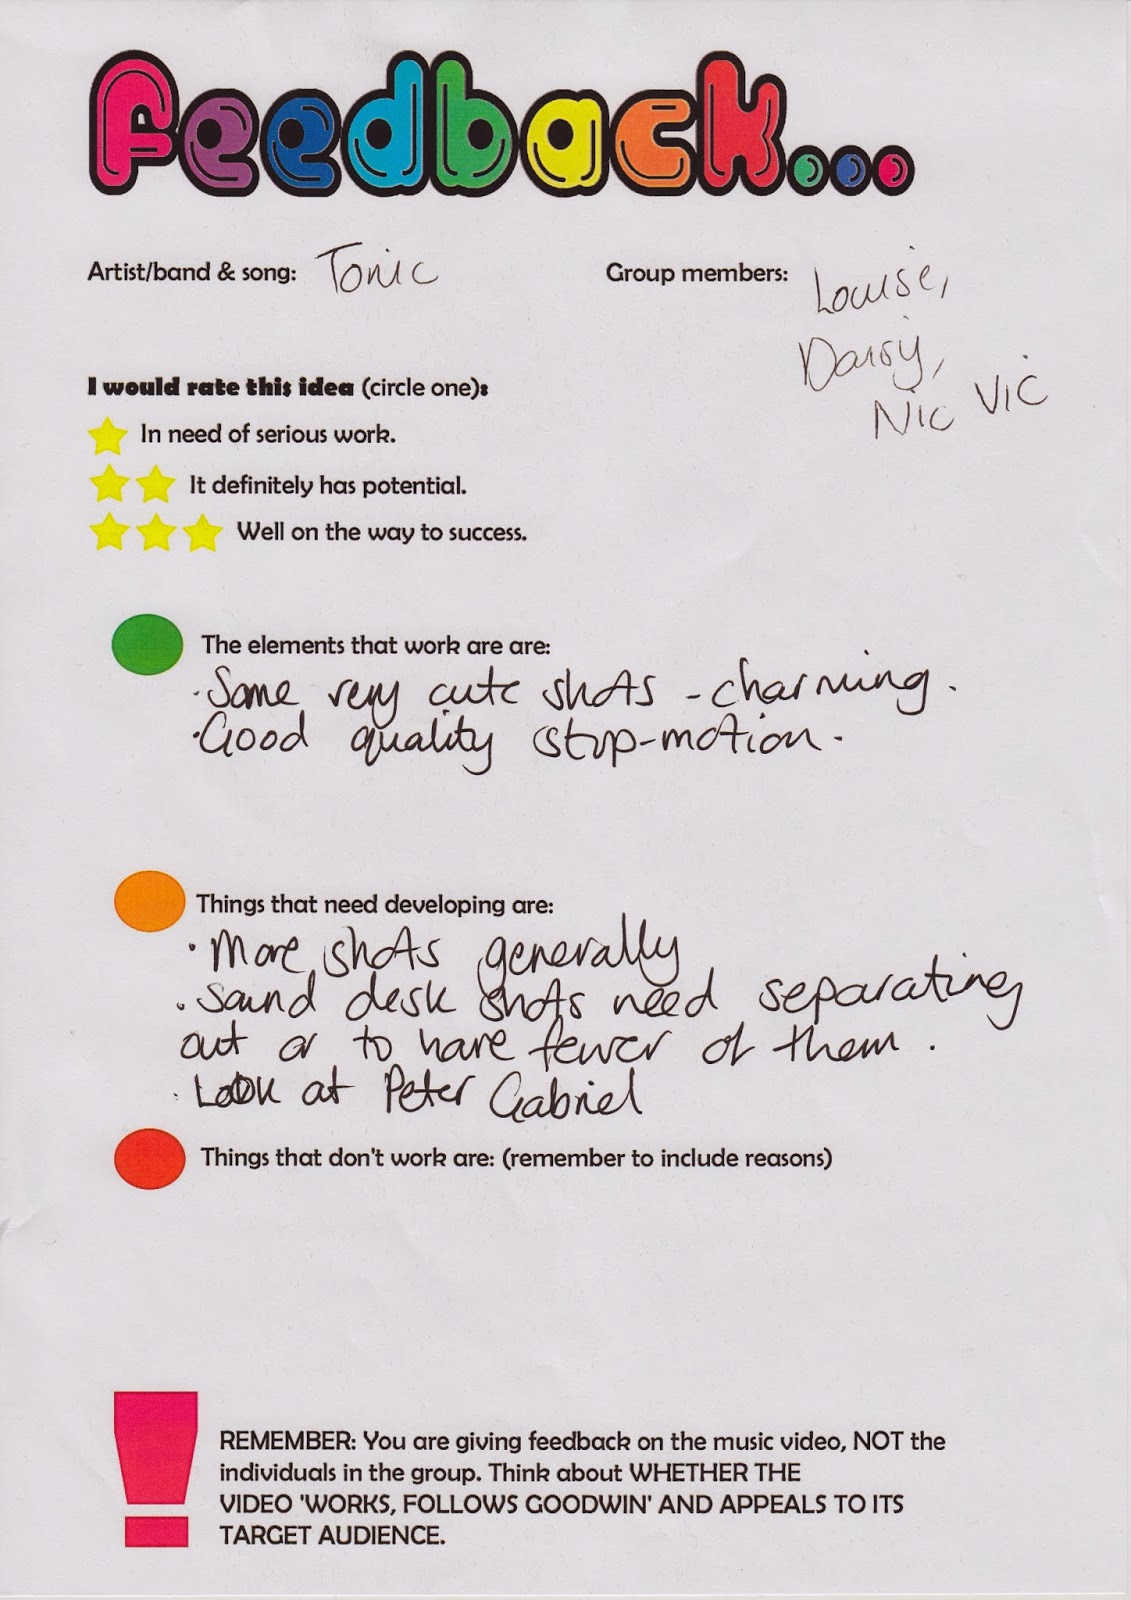 Feedback...
Artist/band & song: Tonic
Group members: Louise,
Daisy,
Nic Vic
I would rate this idea (circle one):
In need of serious work.
It definitely has potential.
Well on the way to success.
The elements that work are are:
· Some very cute shots - charming.
· Good quality stop-motion.
Things that need developing are:
· More shots generally
· Sound desk shots need separating
out or to have fewer of them.
· Look at Peter Gabriel
Things that don't work are: (remember to include reasons)
REMEMBER: You are giving feedback on the music video, NOT the
individuals in the group. Think about WHETHER THE
VIDEO 'WORKS, FOLLOWS GOODWIN' AND APPEALS TO ITS
TARGET AUDIENCE.